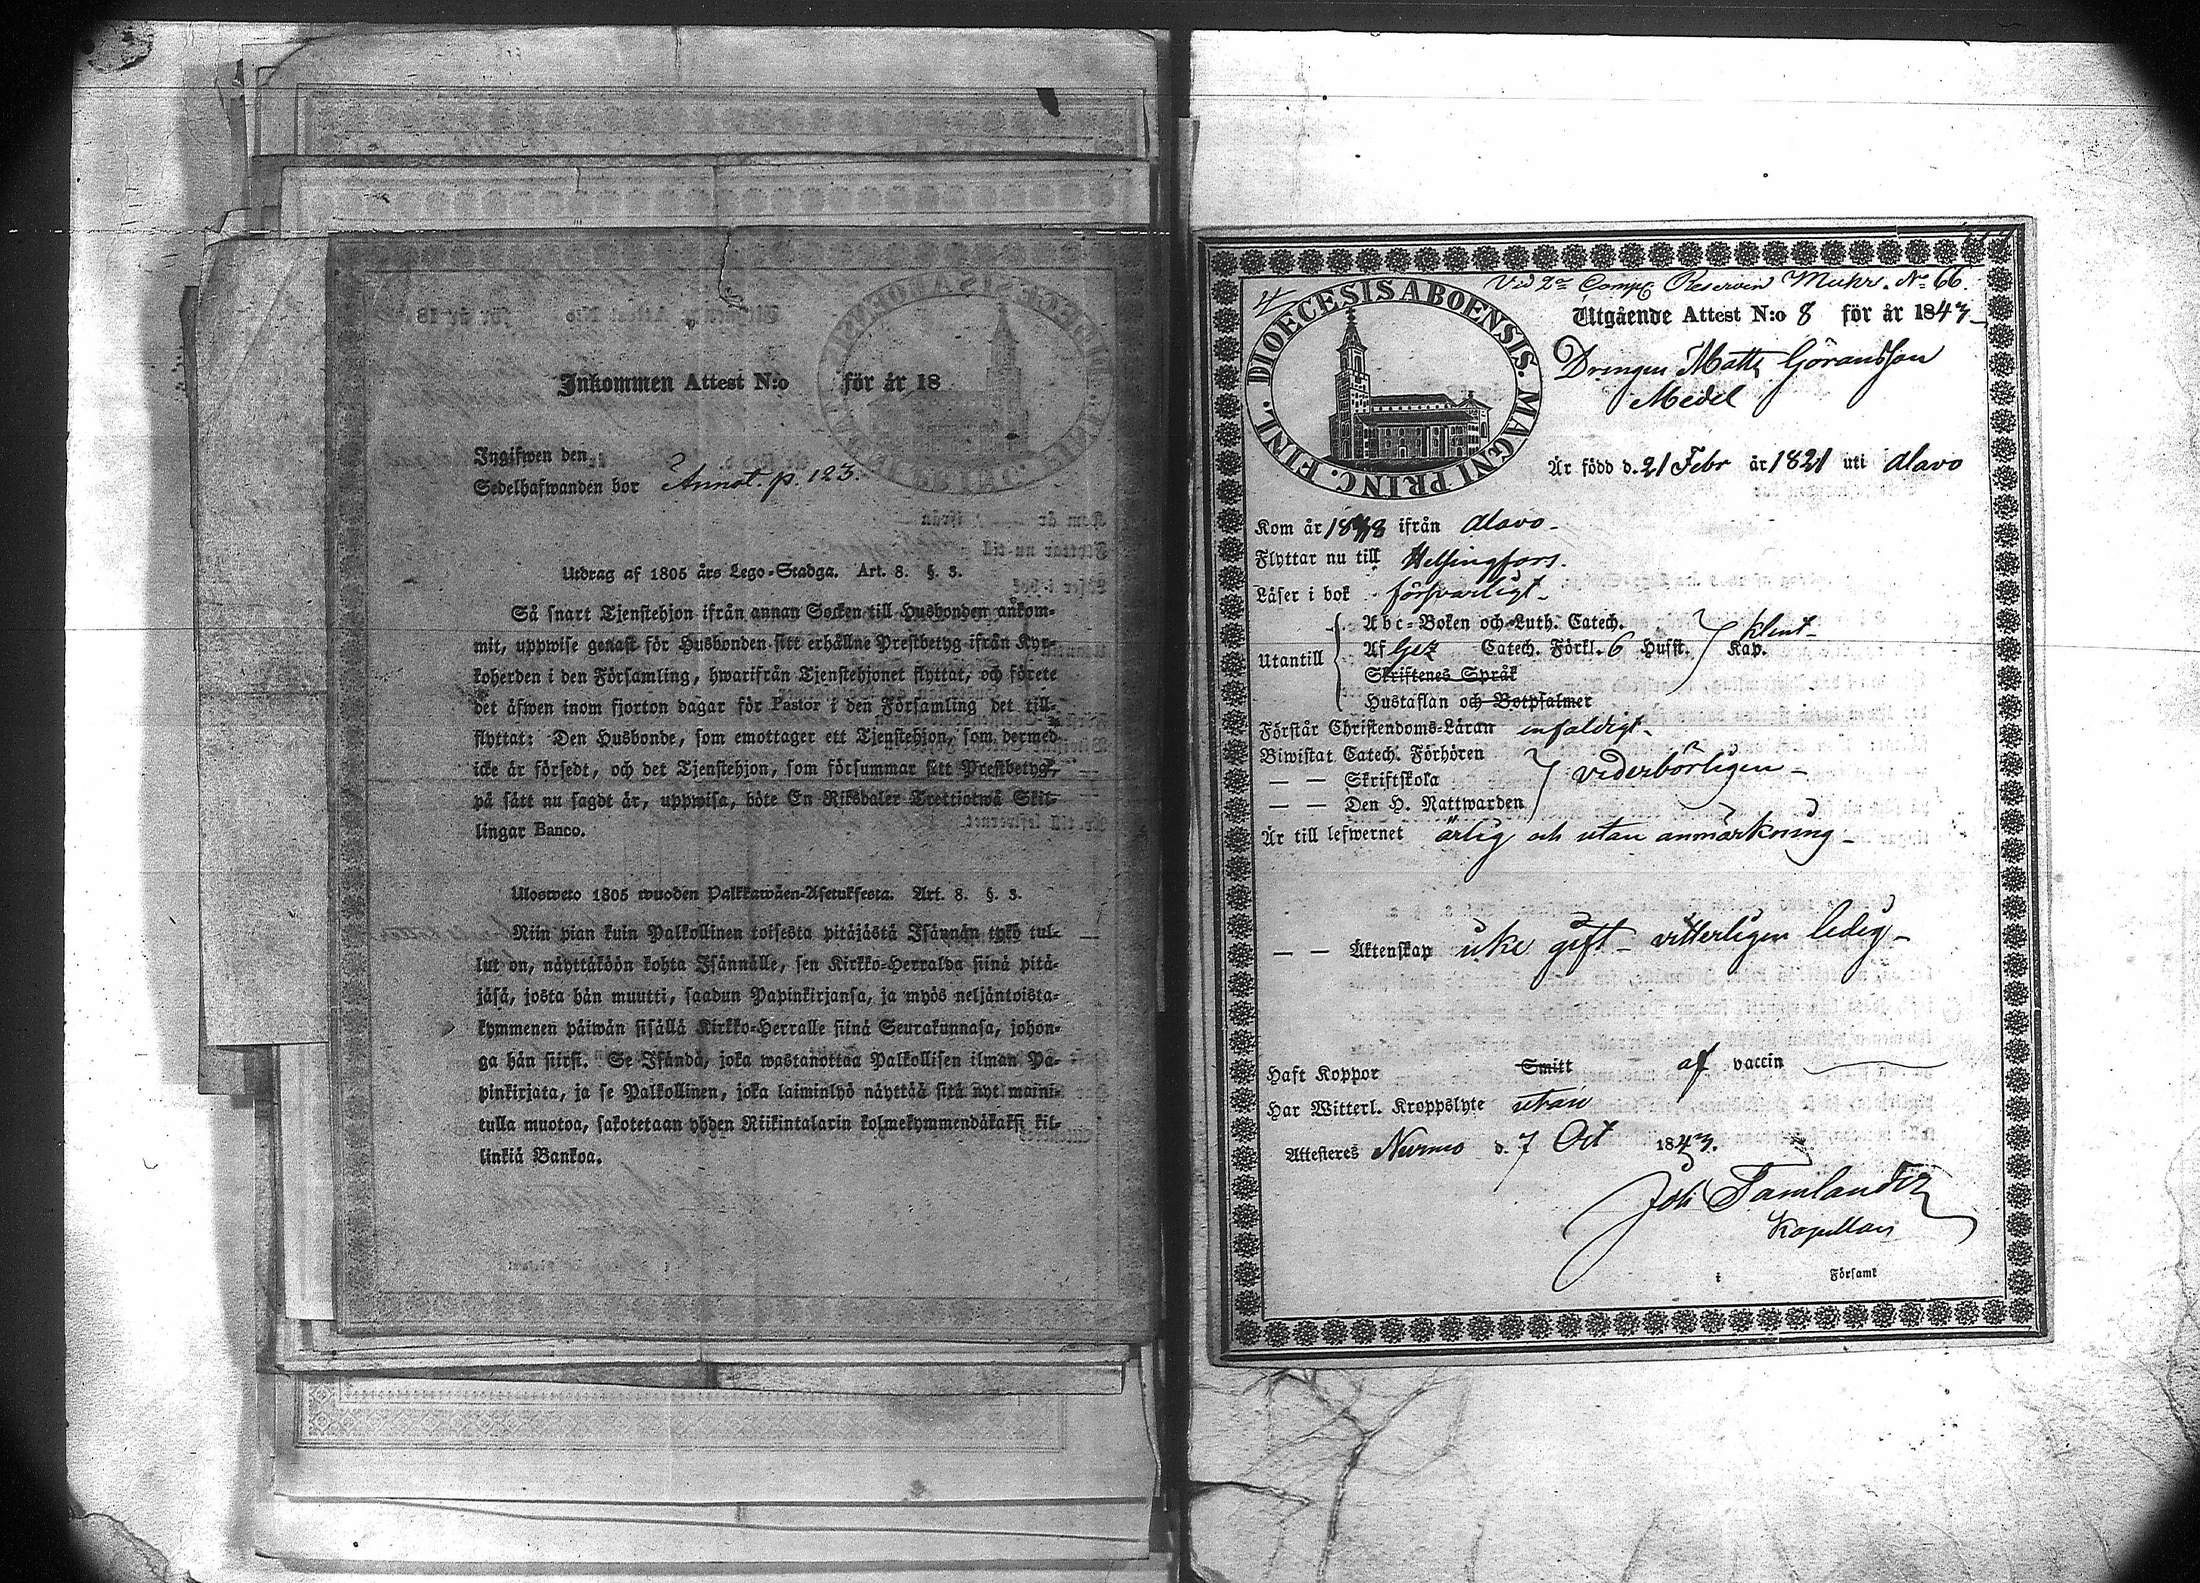 Inkommen Attest N:o för år 18
Ingifwen den
Sedelhafwanden bor Annot. p. 123.
Utdrag af 1805 års Lego-Stadga. Art. 8. §. 3.
Så snart Tjenstehjon ifrån annan Socken till Husbonden ankom-
mit, uppwise genast för Husbonden sitt erhållne Prestbetyg ifrån Kyr-
koherden i den Församling, hwarifrån Tjenstehjonet flyttat, och förete
det äfwen inom fjorton dagar för Pastor i den Församling det till-
flyttat: Den Husbonde, som emottager ett Tjenstehjon, som dermed
icke är försedt, och det Tjenstehjon, som försummar sitt Prestbetyg,
på sätt nu sagdt är, uppwisa, böte En Riksdaler Trettiotwå Skil-
lingar Banco.
Ulosweto 1805 wuoden Palkkawäen-Asetuksesta. Art. 8. §. 3.
Niin pian kuin Palkollinen toisesta pitäjästä Isännän tykö tul-
lut on, näyttäköön kohta Isännälle, sen Kirkko-Herralda siinä pitä-
jäsä, josta hän muutti, saadun Papinkirjansa, ja myös neljäntoista-
kymmenen päiwän sisällä Kirkko-Herralle siinä Seurakunnasa, johon-
ga hän siirsi. Se Isändä, joka wastanottaa Palkollisen ilman Pa-
pinkirjata, ja se Palkollinen, joka laiminlyö näyttää sitä nyt maini-
tulla muotoa, sakotetaan yhden Riikintalarin kolmekymmendäkaksi kil-
linkiä Bankoa.
Vid 2:a Comp. Reserven Nuhr. N:o 66.
DIOECESIS ABOENSIS. MAGNI PRINC. FINL.
Utgående Attest N:o 8 för år 1843
Drengen Matts Göransson
Medel
Är född d. 21 Febr år 1821 uti Alavo
Kom år 18 ifrån Alavo
Flyttar nu till Helsingfors.
Läser i bok försvarligt
Abc-Boken och Luth. Catech.
Utantill Af Gez Catech. Förkl. 6 Hufst. Kap. klent
Skriftenes Språk
Hustaflan och Botpsalmer
Förstår Christendoms-Läran enfaldigt
Biwistat Catech. Förhören
— — Skriftskola vederbörligen
— — Den H. Nattwarden
Är till lefwernet ärlig och utan anmärkning
— — Äktenskap icke gift – vitterligen ledig
Haft Koppor Smitt af vaccin
Har Witterl. Kroppslyte utan
Attesteres Nurmo d. 7 Oct 1843.
Joh Tamlander
Kapellan
i Församl